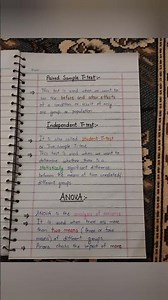 Paired Sample T-test
This test is used when we want to
see the before and after effects
of a condition or result of only
one group or population
Independent T-test
It is also called student T-test
or Two sample T-test
This test is used when we want to
determine whether there is a
statistically significant difference
between the means of two unrelated/
different groups.
ANOVA
ANOVA is the analysis of variance
It is used when there are more
than two means (three or two
means) of different groups.
Anova checks the impact of more